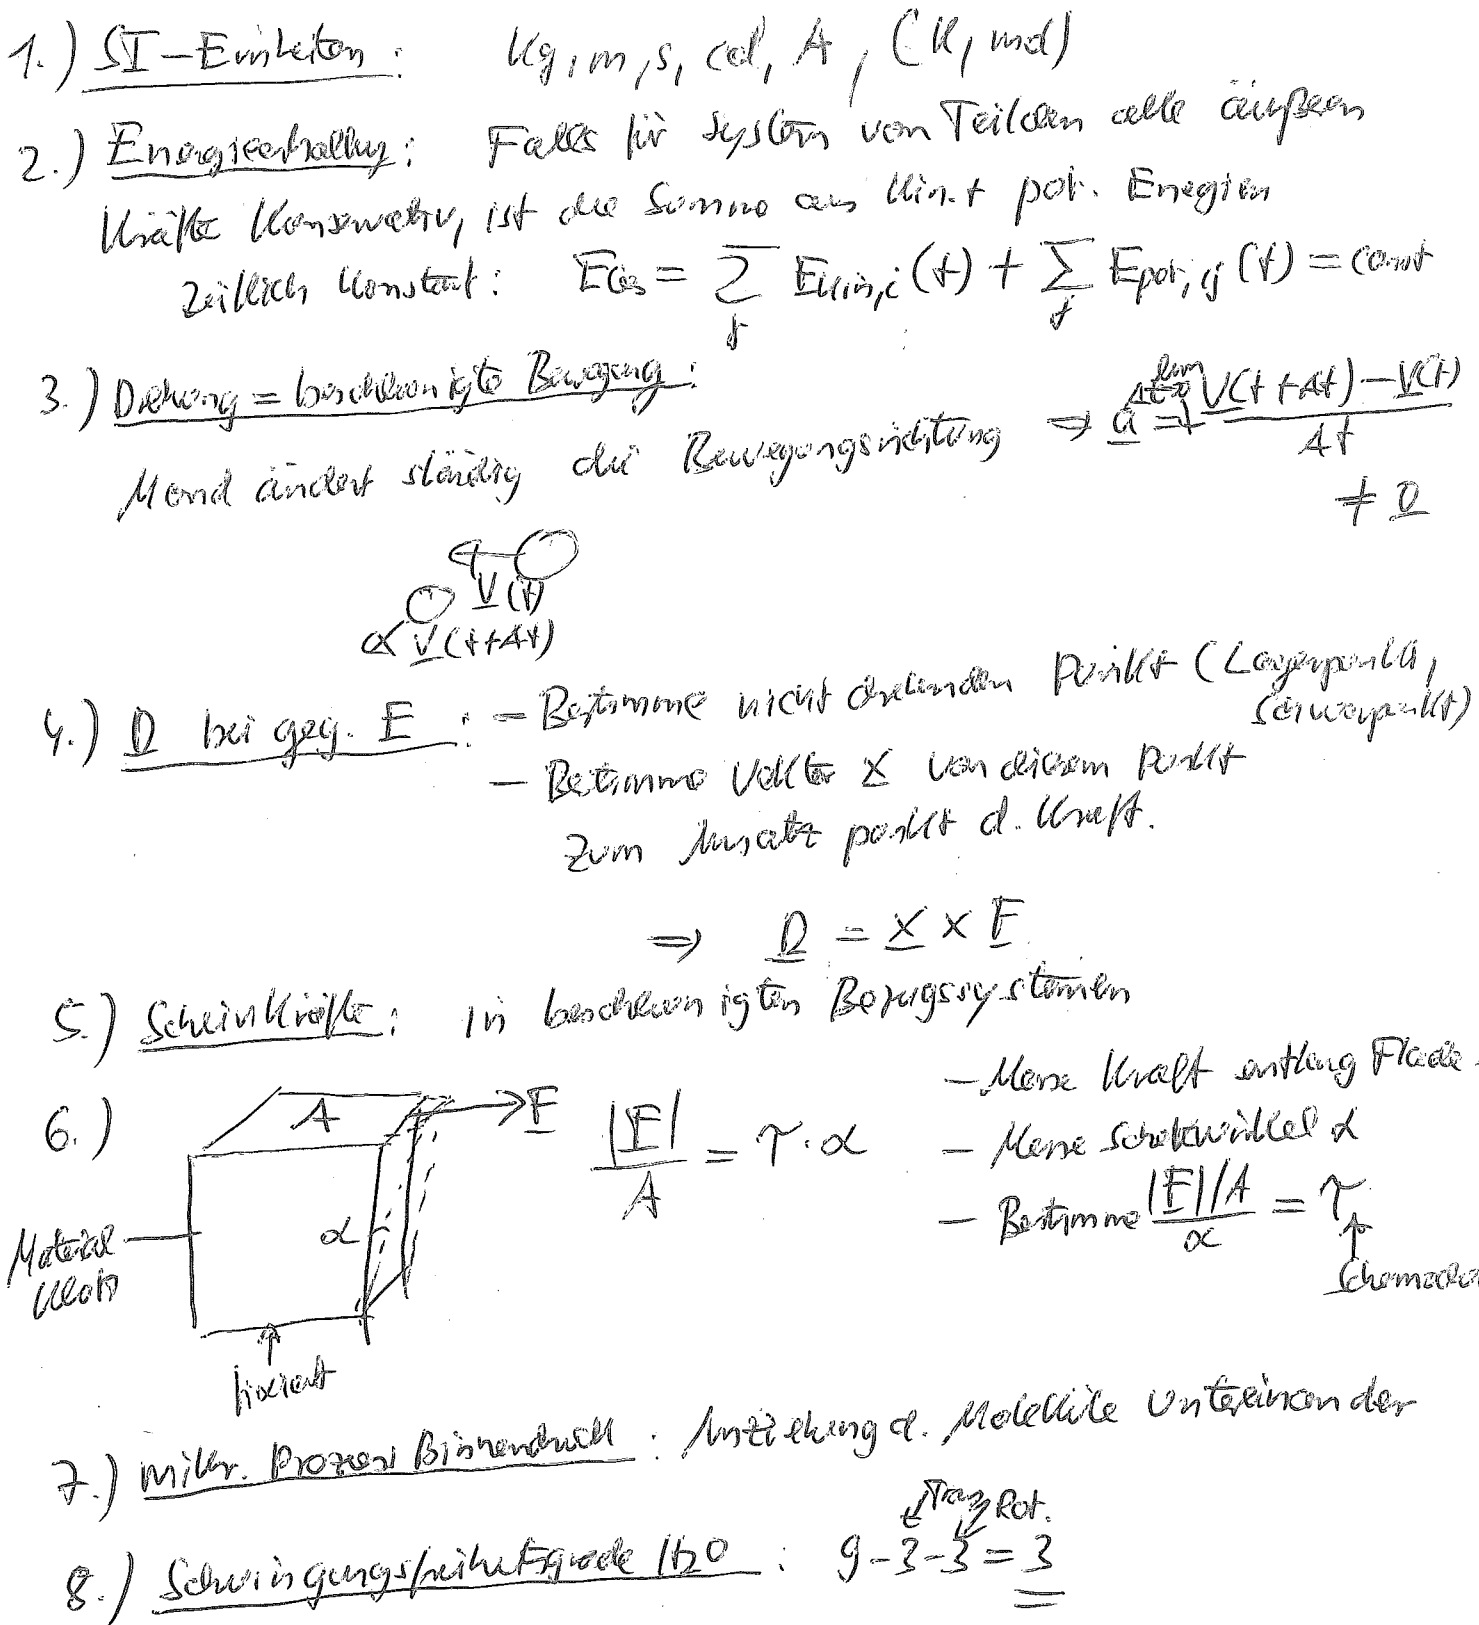 1.) SI-Einheiten: kg, m, s, cd, A, (K, mol)
2.) Energieerhaltung: Falls für System von Teilchen alle äußeren
Kräfte konservativ, ist die Summe aus kin. + pot. Energien
zeitlich konstant: Eges = Σ Ekin,i (t) + Σ Epot,ij (t) = const
3.) Drehung = beschleunigte Bewegung:
Mond ändert ständig die Bewegungsrichtung ⇒ a = lim Δt→0 (V(t+Δt) - V(t)) / Δt
≠ 0
V(t)
V(t+Δt)
4.) D bei geg. F: - Bestimme nicht drehenden Punkt (Lagerpunkt,
Schwerpunkt)
- Bestimme Vektor x von diesem Punkt
zum Ansatzpunkt d. Kraft.
⇒ D = x × F
5.) Scheinkräfte: in beschleunigten Bezugssystemen
6.) A F |F|/A = τ · α - Messe Kraft entlang Fläche
- Messe Scherwinkel α
- Bestimme (|F|/A)/α = τ
α
Material
Klotz
fixiert
7.) mikr. Prozess Binnendruck: Anziehung d. Moleküle untereinander
Trans Rot.
8.) Schwingungsfreiheitsgrade H2O: 9-3-3=3